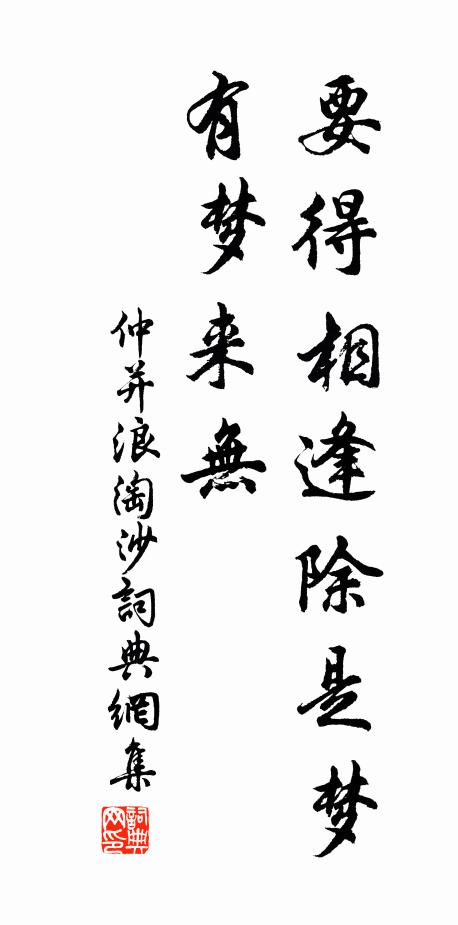 要得相逢除是梦
有梦来無
仲并浪淘沙詞典網集
詞典网印